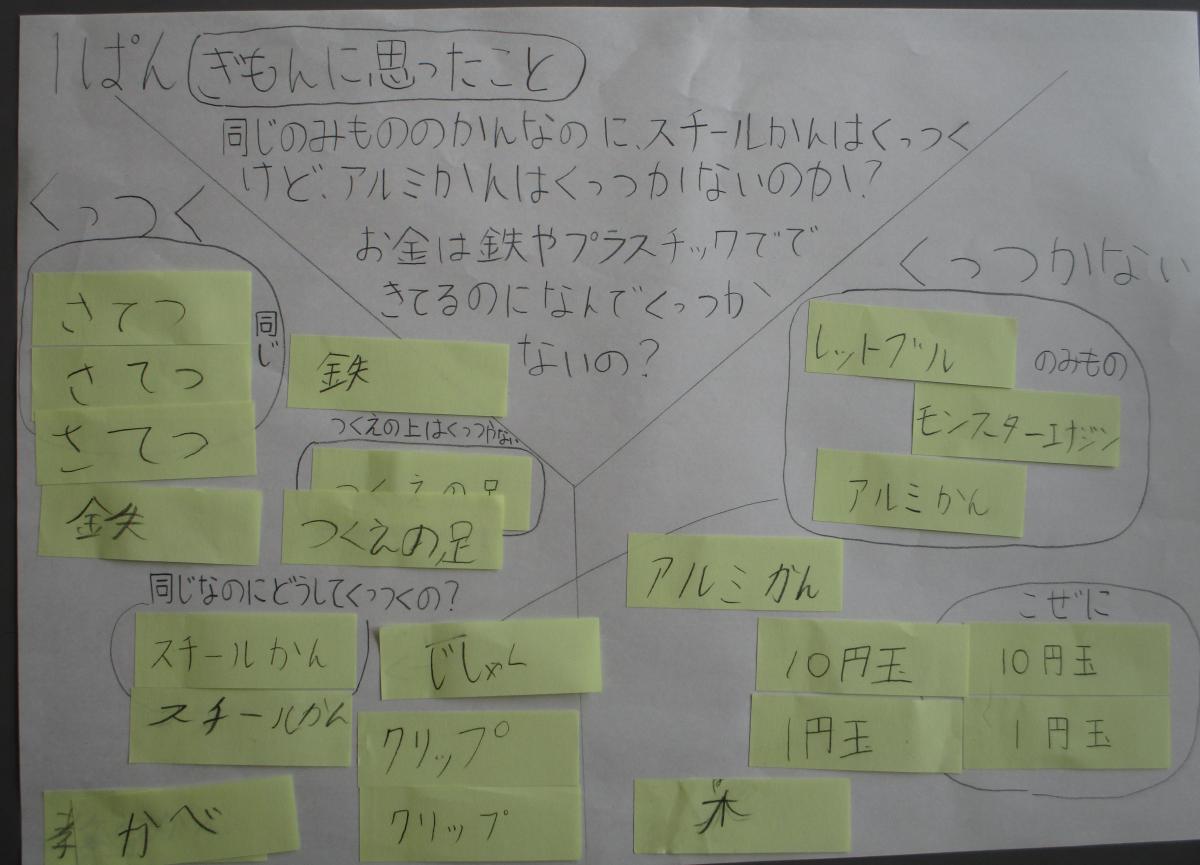 1ぱん ぎもんに思ったこと
同じのみもののかんなのに、スチールかんはくっつく
けど、アルミかんはくっつかないのか?
お金は鉄やプラスチックでで
きてるのになんでくっつか
ないの?
くっつく
さてつ
さてつ
さてつ
同じ
鉄
鉄
つくえの上はくっつかない
つくえの足
つくえの足
同じなのにどうしてくっつくの?
スチールかん
スチールかん
じしゃく
クリップ
クリップ
かべ
くっつかない
レットブル
のみもの
モンスターエナジン
アルミかん
アルミかん
こぜに
10円玉
10円玉
1円玉
1円玉
木